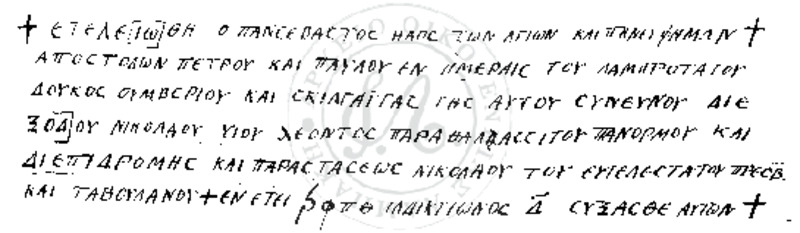 + ΕΤΕΛΕΙΩΘΗ Ο ΠΑΝCΕΒΑCΤΟC ΝΑΟC ΤΩΝ ΑΓΙΩΝ ΚΑΙ ΠΑΝΕΥΦΗΜΩΝ +
ΑΠΟCΤΟΛΩΝ ΠΕΤΡΟΥ ΚΑΙ ΠΑΥΛΟΥ ΕΝ ΗΜΕΡΑΙC ΤΟΥ ΛΑΜΠΡΟΤΑΤΟΥ
ΔΟΥΚΟC ΟΥΜΒΕΡΙΟΥ ΚΑΙ CΚΙΛΓΑΪΤΑC ΤΗC ΑΥΤΟΥ CΥΝΕΥΝΟΥ ΔΙΕ
ΞΟΔΟΥ ΝΙΚΟΛΑΟΥ ΥΙΟΥ ΛΕΟΝΤΟC ΠΑΡΑΘΑΛΑCCΙΤΟΥ ΠΑΝΟΡΜΟΥ ΚΑΙ
ΔΙ ΕΠΙΔΡΟΜΗC ΚΑΙ ΠΑΡΑCΤΑCΕΩC ΝΙΚΟΛΑΟΥ ΤΟΥ ΕΥΤΕΛΕCΤΑΤΟΥ ΠΡΕCΒ
ΚΑΙ ΤΑΒΟΥΛΑΡΙΟΥ + ΕΝ ΕΤΕΙ ϚΦΠΘ ΙΝΔΙΚΤΙΩΝΟC Δ CΥΞΑCΘΕ ΑΥΤΩΝ +